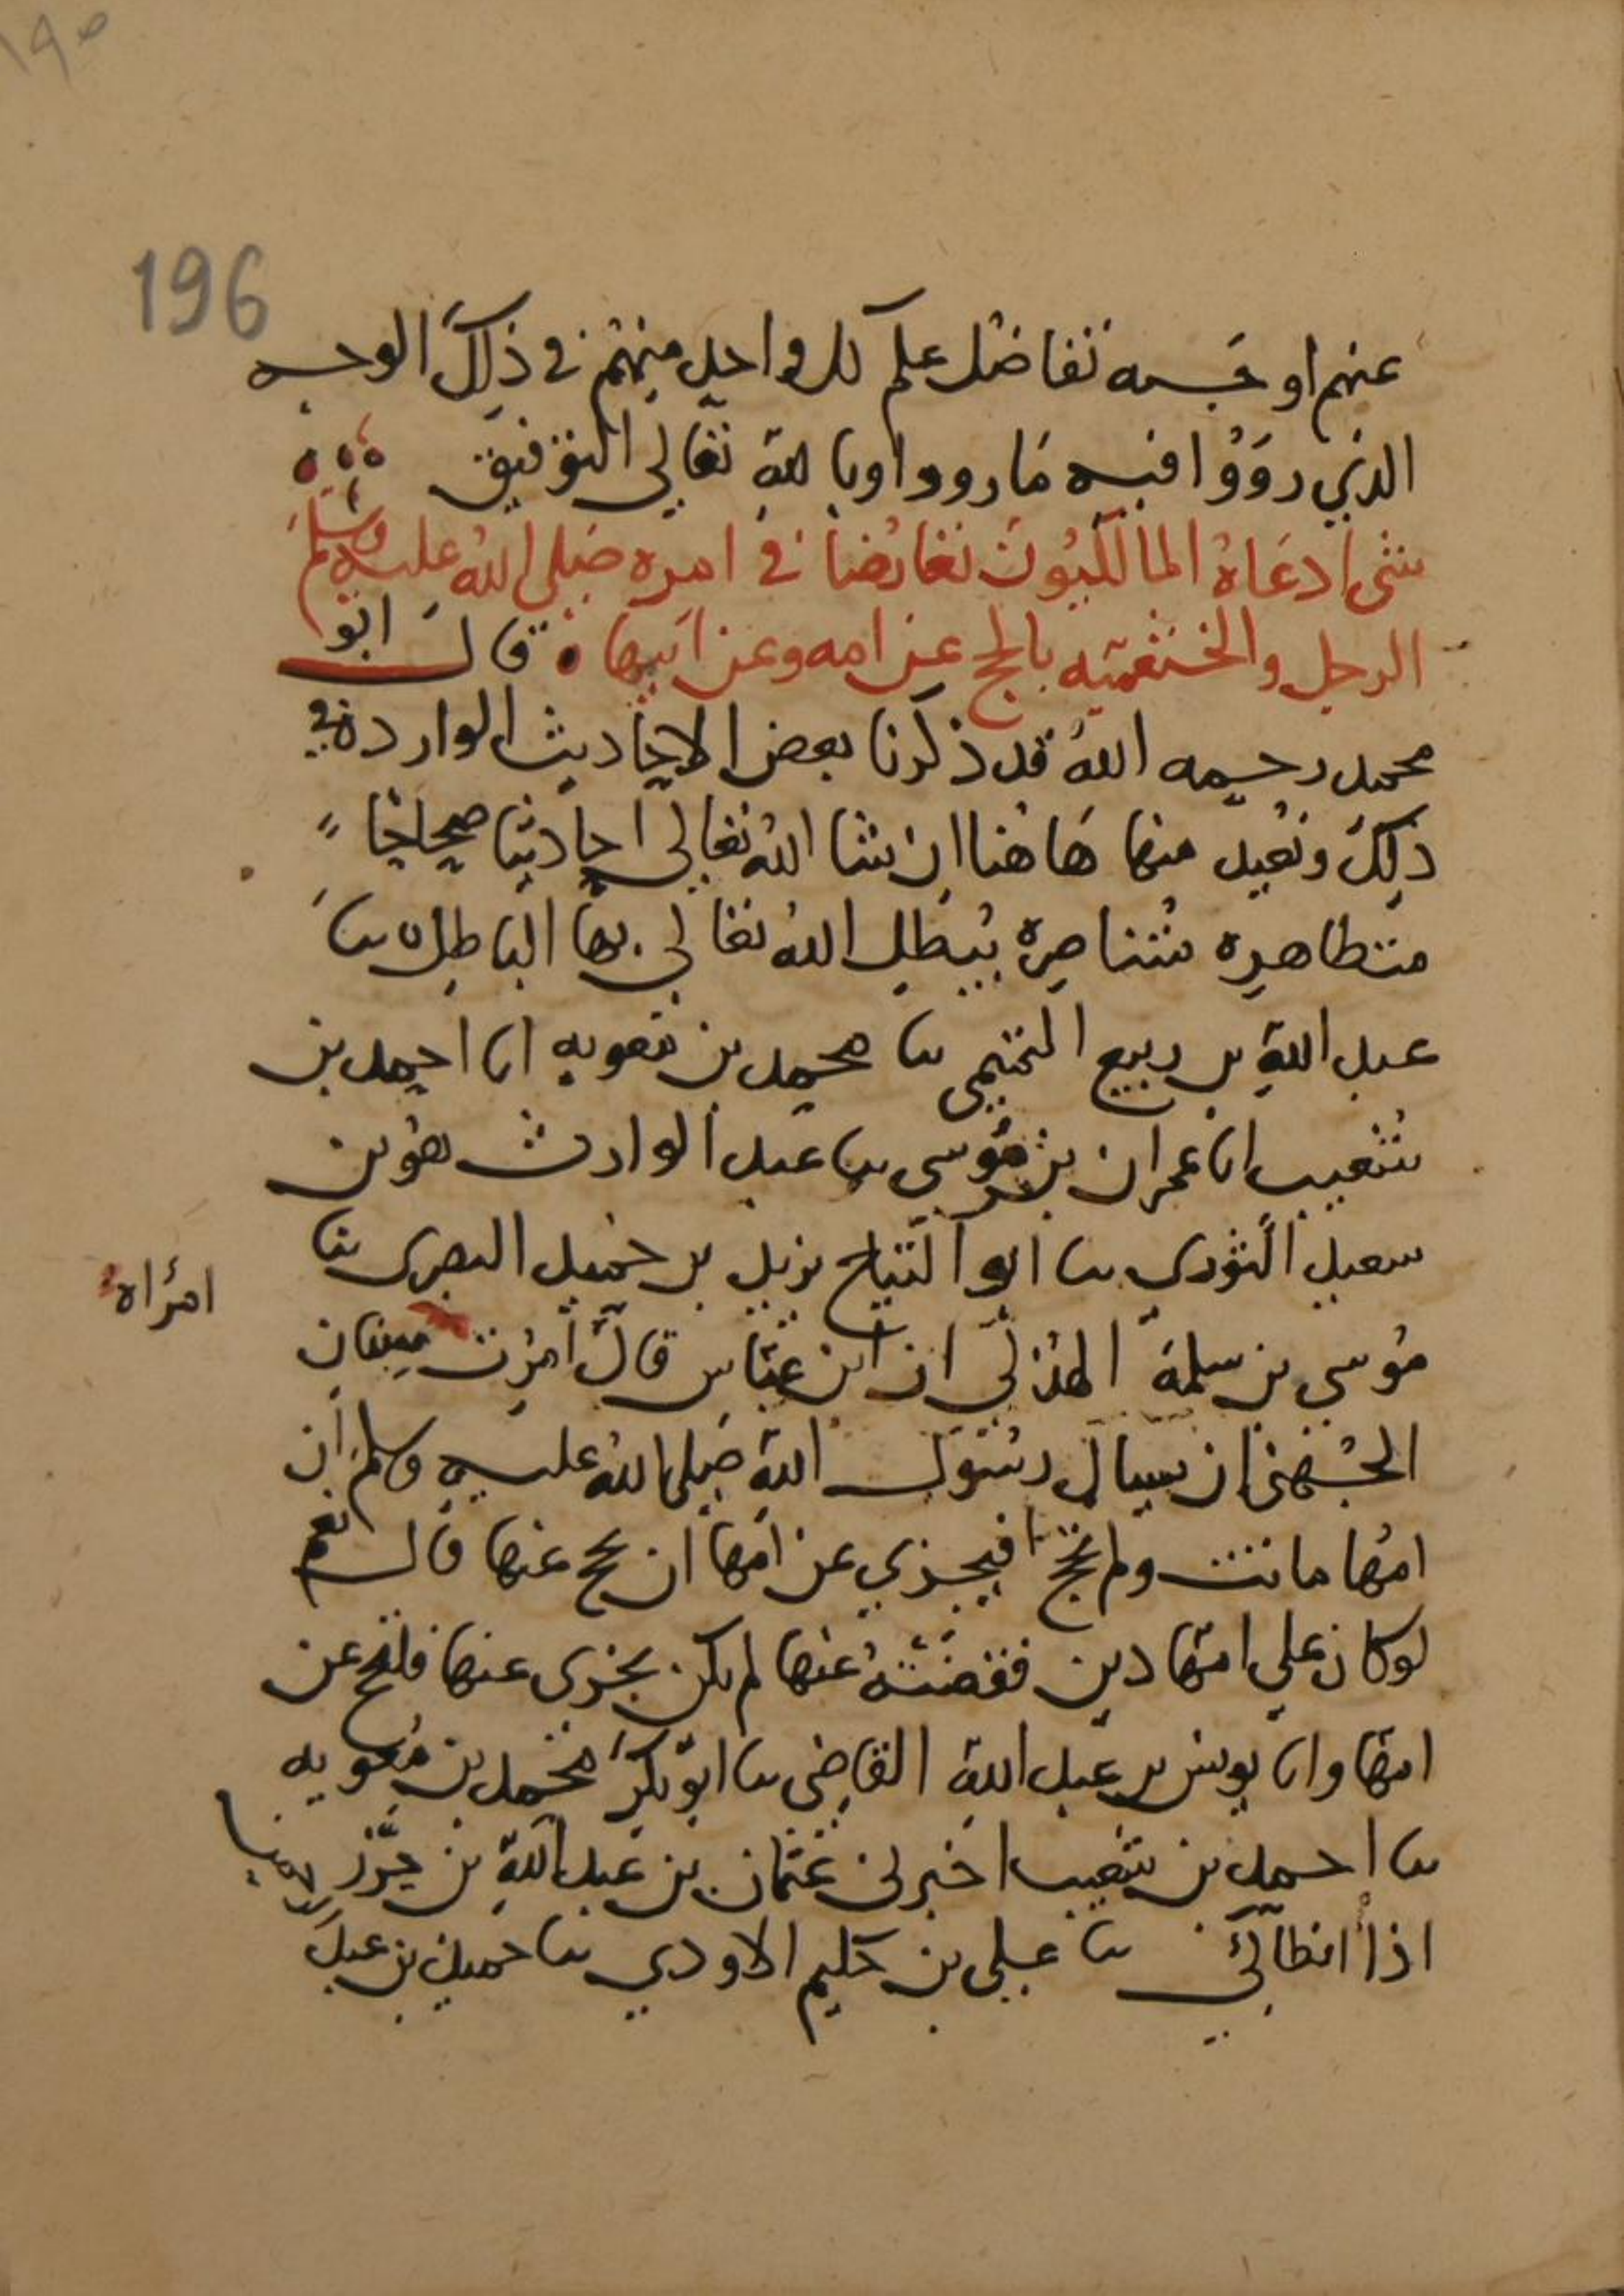 ١٩٥
196
عنهم او جسمه تفاضل علم كل واحد منهم في ذلك الوجه
الذي رووا فيه ما رووا وبالله تعالي التوفيق
شى ادعاه المالكيون تعارضا في امره صلى الله عليه وسلم
الرجل والخثعميه بالحج عن امه وعن ابيها قال ابو
محمد رحمه الله قد ذكرنا بعض الاحاديث الواردة في
ذلك ونعيد منها هاهنا ان شا الله تعالى احاديثا صحاحا
متظاهره متناصرة يبطل الله تعالى بها الباطل ٥ نا
عبد الله بن ربيع التميمى نا محمد بن معويه انا احمد بن
شعيب انا عمران بن موسى نا عبد الوارث هو بن
سعيد التوري نا ابو التياح يزيد بن حميد البصرى نا
موسى بن سلمة الهذلي ان ابن عباس قال امرت سنان
امرأه
الجهنى ان يسال رسول الله صلى الله عليه وسلم ان
امها ماتت ولم تحج افيجزي عن امها ان تحج عنها قال نعم
لو كان على امها دين فقضته عنها لم يكن يجزى عنها فلتحج عن
امها وانا يونس بن عبد الله القاضى نا ابو بكر محمد بن معويه
نا احمد بن شعيب اخبرنى عثمان بن عبد الله بن حرزاد
اذا انطاكي نا على بن حكيم الاودي نا حميد بن عبد